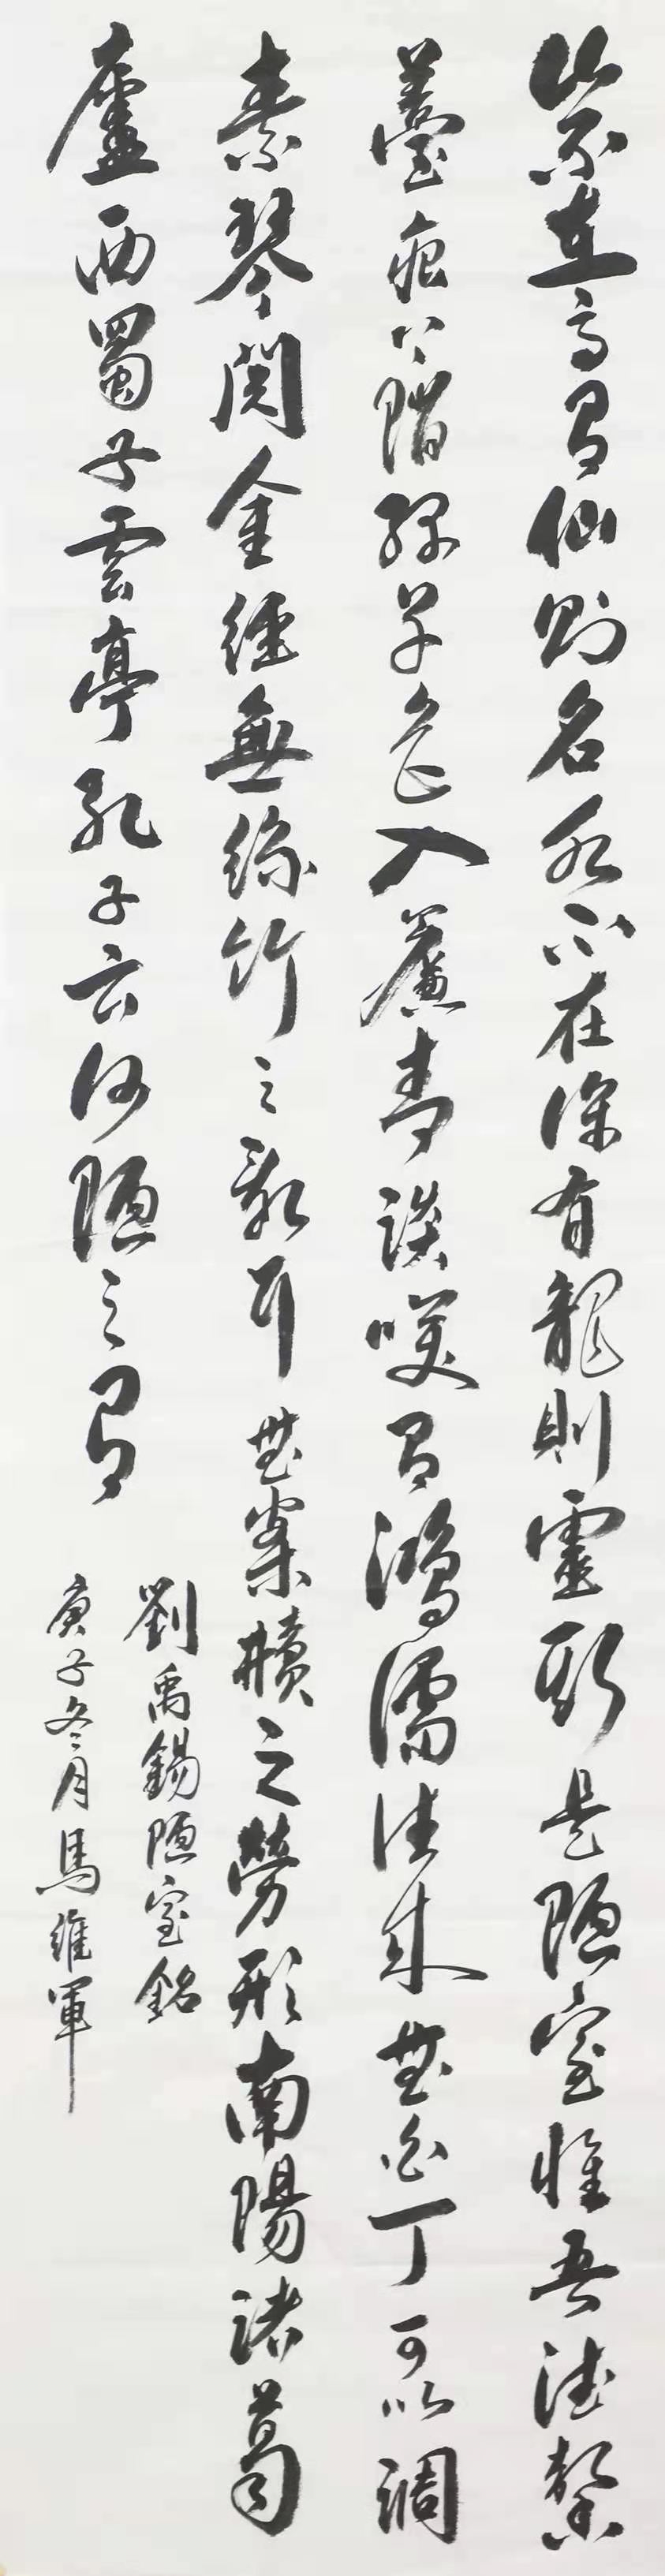 山不在高有仙則名水不在深有龍則靈斯是陋室惟吾德馨
薹痕上階綠草色入簾青談咲有鴻儒往來無白丁可以調
素琴閱金經無絲竹之亂耳無案牘之勞形南陽諸葛
廬西蜀子雲亭孔子云何陋之有
劉禹錫陋室銘
庚子冬月馬維軍